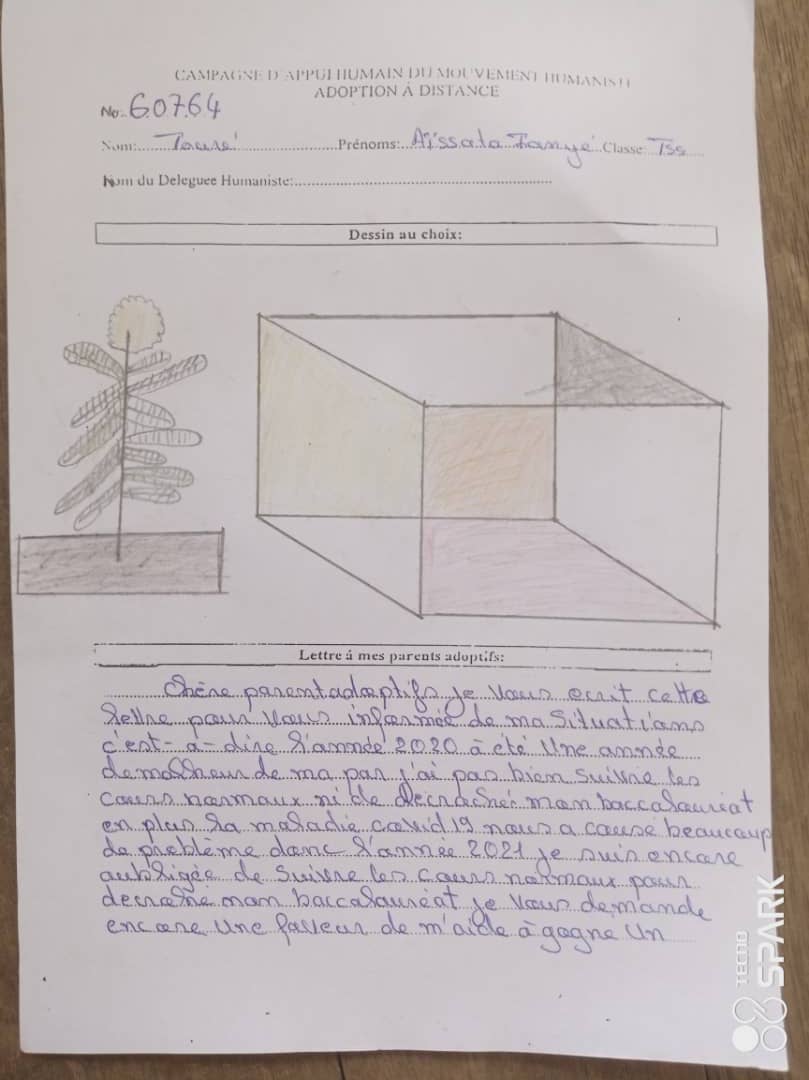 CAMPAGNE D'APPUI HUMAIN DU MOUVEMENT HUMANISTE
ADOPTION À DISTANCE
No: 60764
Nom: Touré Prénoms: Aïssata Fanyé Classe: Tss
Nom du Deleguee Humaniste:
Dessin au choix:
Lettre á mes parents adoptifs:
Chère parent adoptifs je vous ecrit cette
lettre pour vous informée de ma situations
c'est-a-dire l'année 2020 à été Une année
de malheur de ma par j'ai pas bien suivrie les
cours normaux ni de decraché mon baccalauréat
en plus la maladie covid 19 nous a cause beaucoup
de problème donc l'année 2021 je suis encore
aubligée de suivre les cours normaux pour
decraché mon baccalauréat je vous demande
encore Une faveur de m'aide à gagne Un
TECNO
SPARK